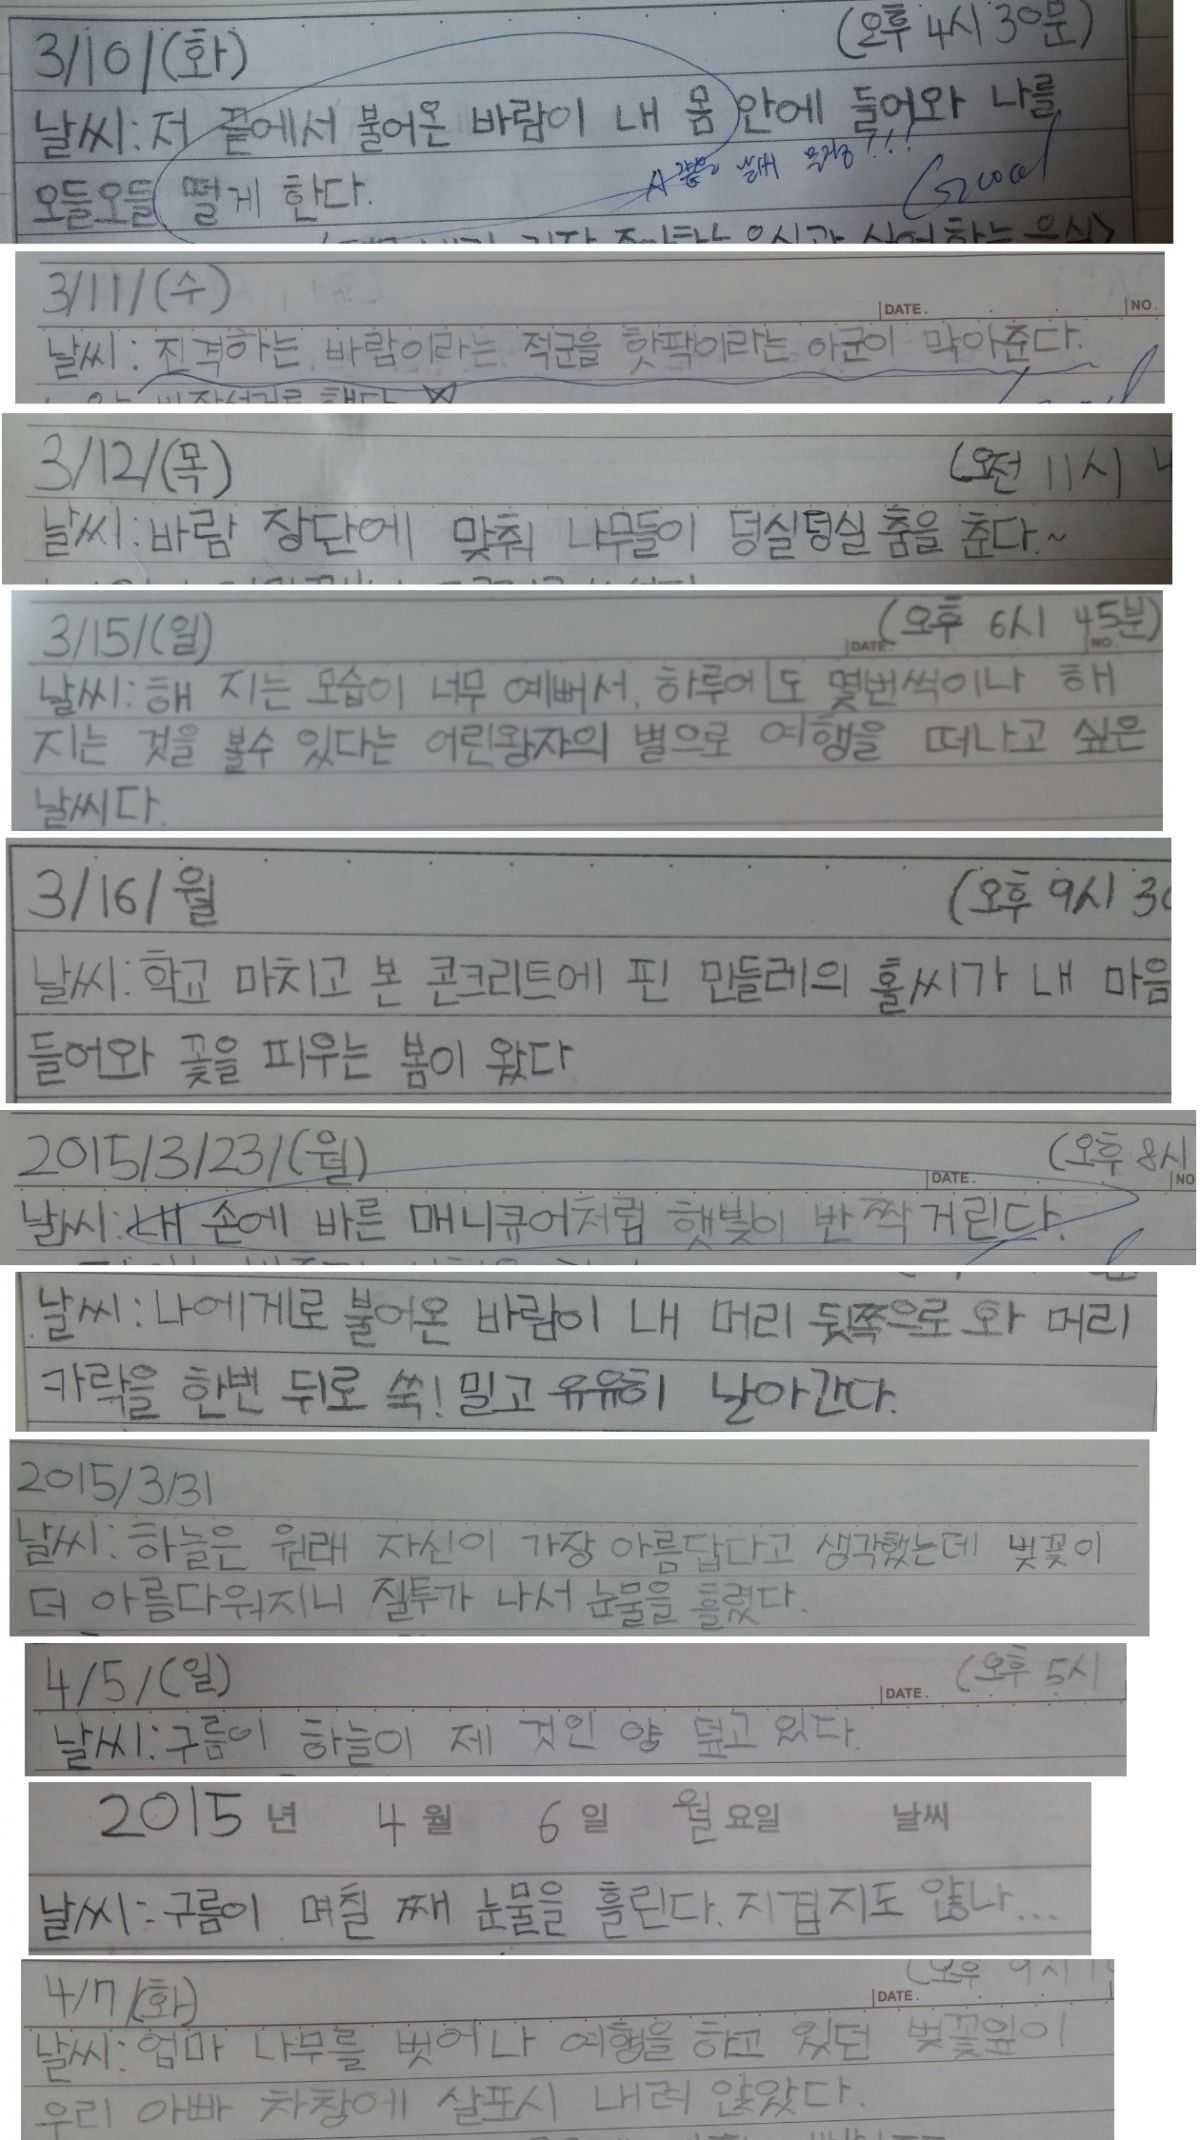 3/10/(화) (오후 4시 30분)
날씨: 저 끝에서 불어온 바람이 내 몸 안에 들어와 나를
오들오들 떨게 한다.
날씨 Good
3/11/(수) DATE. NO.
날씨: 진격하는 바람이라는 적군을 핫팩이라는 아군이 막아준다.
3/12/(목) (오전 11시
날씨: 바람 장단에 맞춰 나무들이 덩실덩실 춤을 춘다.~
3/15/(일) DATE. (오후 6시 45분) NO.
날씨: 해 지는 모습이 너무 예뻐서, 하루에도 몇번씩이나 해
지는 것을 볼수 있다는 어린왕자의 별으로 여행을 떠나고 싶은
날씨다.
3/16/월 (오후 9시 30
날씨: 학교 마치고 본 콘크리트에 핀 민들레의 홀씨가 내 마음
들어와 꽃을 피우는 봄이 왔다
2015/3/23/(월) DATE. (오후 8시 NO
날씨: 내 손에 바른 매니큐어처럼 햇빛이 반짝거린다.
날씨: 나에게로 불어온 바람이 내 머리 뒷쪽으로 와 머리
카락을 한번 뒤로 쑥! 밀고 유유히 날아간다.
2015/3/31
날씨: 하늘은 원래 자신이 가장 아름답다고 생각했는데 벚꽃이
더 아름다워지니 질투가 나서 눈물을 흘렸다.
4/5/(일) DATE. (오후 5시
날씨: 구름이 하늘이 제 것인 양 덮고 있다.
2015 년 4 월 6 일 월 요일 날씨
날씨: 구름이 며칠 째 눈물을 흘린다. 지겹지도 않나...
4/7/(화) DATE. (오후 9시
날씨: 엄마 나무를 벗어나 여행을 하고 있던 벚꽃잎이
우리 아빠 차창에 살포시 내려 앉았다.